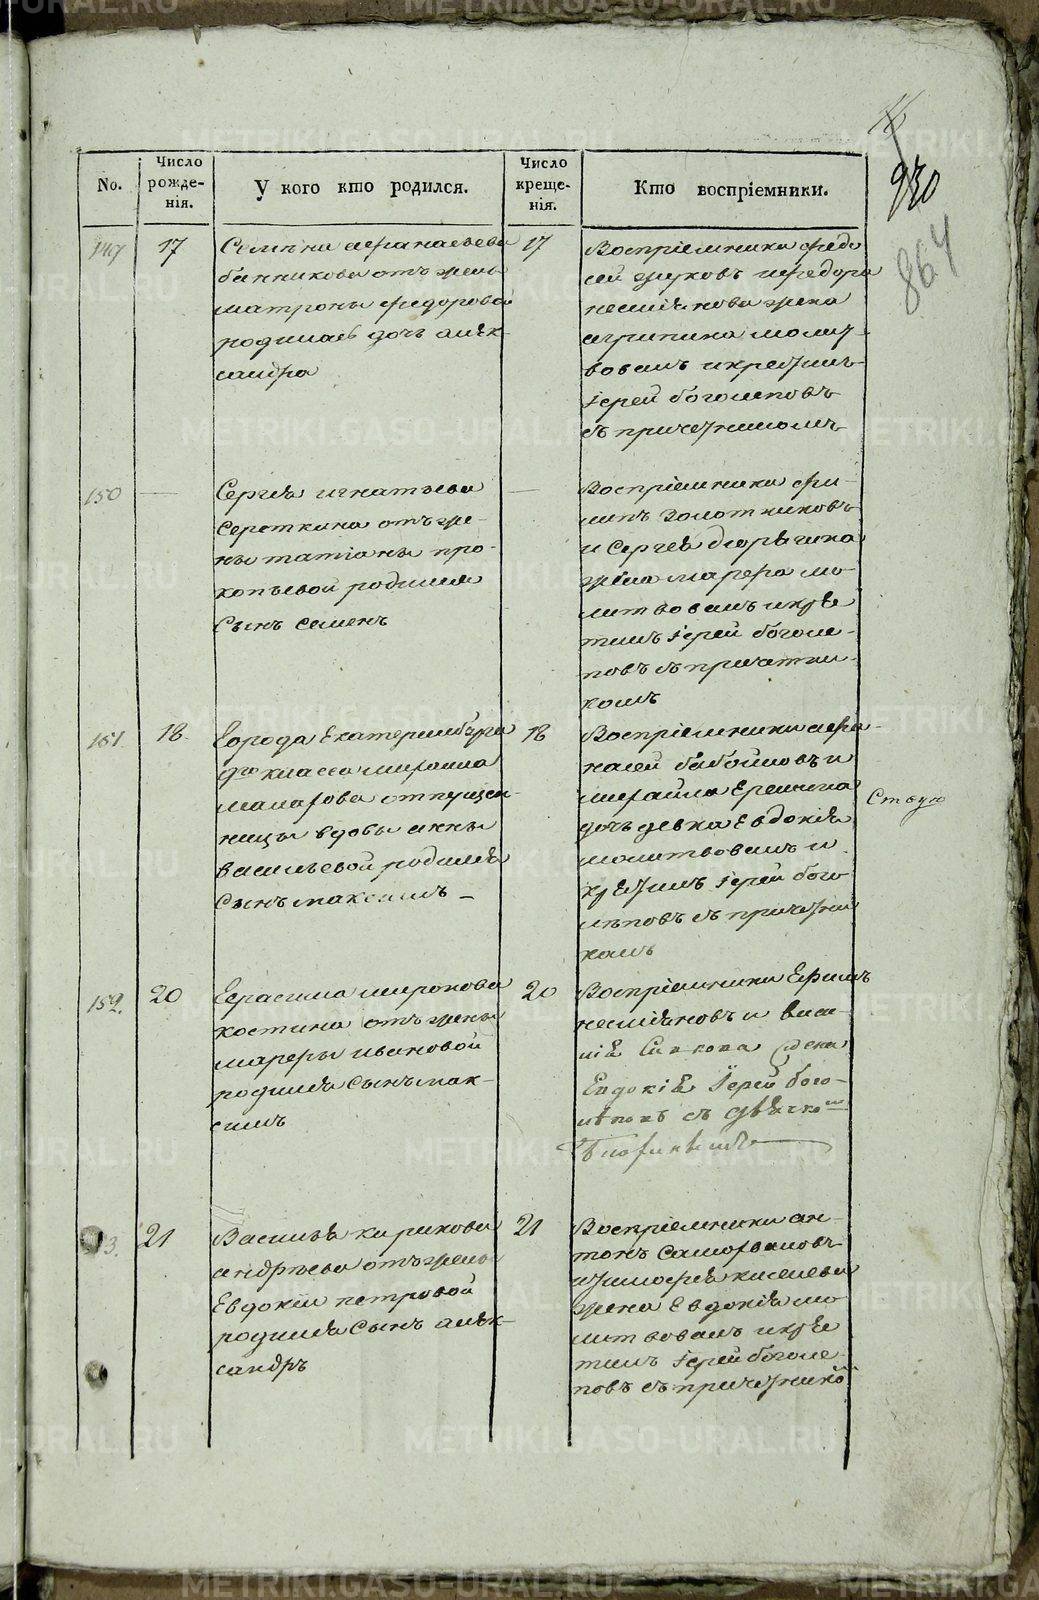 930
864
No.
Число рожде-нія.
У кого кто родился.
Число креще-нія.
Кто воспріемники.
149
17
Семена афанасьева
банникова отъ жены
матроны федоровой
родилась дочь алек-
сандра
17
Воспріемники федо
сей жуковъ и федора
несміянова жена
агрипина молит-
вовалъ и крестилъ
іерей боголеповъ
съ причетникомъ
150
Сергія игнатьева
сереткина отъ же-
ны татіаны про-
копьевой родился
сынъ семенъ
Воспріемники фи-
липъ золотниковъ
и Сергея
жена марфа мо-
литвовалъ и кре
тилъ іерей боголе-
повъ съ причетни
комъ
151
18
Города Екатеринбурга
класса михаила
макарова отпущен-
ницы вдовы анны
васильевой родился
сынъ максимъ
18
Воспріемники афа-
насей бабойловъ и
михайла Еремина
дочь девка Евдокія
молитвовалъ и
крестилъ іерей бого
леповъ съ причетни
комъ
152.
20
Герасима миронова
костина отъ жены
марфы ивановой
родился сынъ мак-
симъ
20
Воспріемники Ефимъ
несміяновъ и васи-
лія жена
Евдокія Іерей бого-
леповъ съ дьячко
21
Василья кирикова
андреева отъ жены
Евдокіи петровой
родился сынъ алек-
сандръ
21
Воспріемники ан-
тонъ Саморвановъ
и тимофея киселева
жена Евдокія мо
литвовалъ и кре
тилъ іерей боголе-
повъ съ причетнико
METRIKI.GASO-URAL.RU